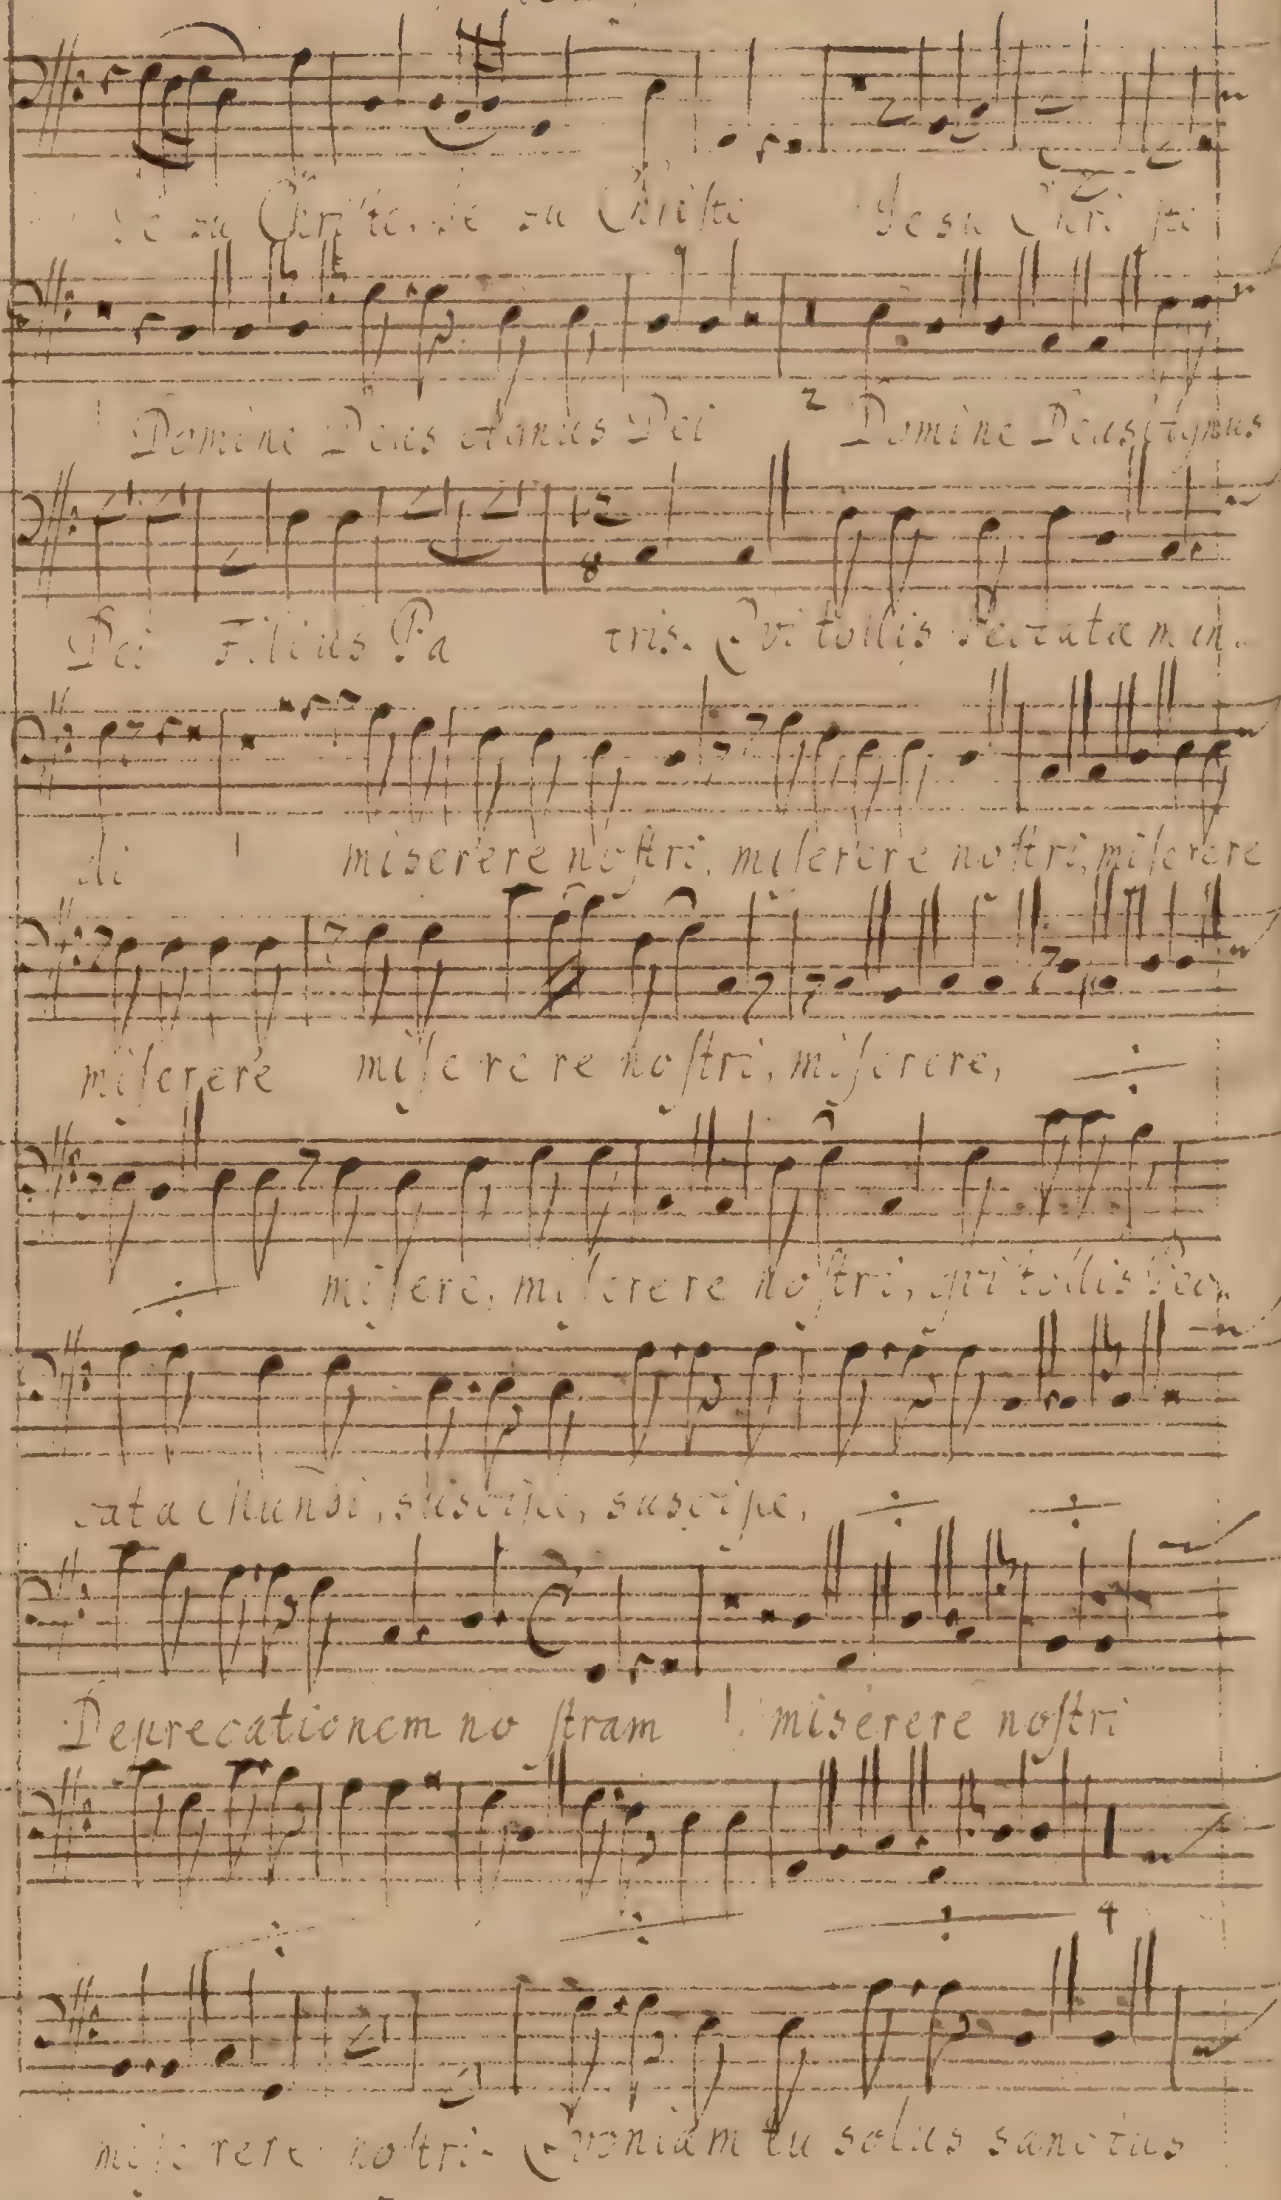 Je su Christe, Je su Christe Jesu Chri ste
Domine Deus Agnus Dei 2 Domine Deus Agnus
Dei Filius Pa tris. Qvi tollis Peccata mun
di 1 miserere noſtri, miſerere noſtri, miſerere
miſerere miſe re re noſtri, miſerere, ÷
÷ miſere, miſerere noſtri, qvi tollis Pec
cata Mundi, suscipe, suscipe, ÷ ÷
Deprecationem no ſtram 1. miserere noſtri
÷ ÷ ÷ 4
miſe rere noſtri. Qvoniam tu solus sanctus